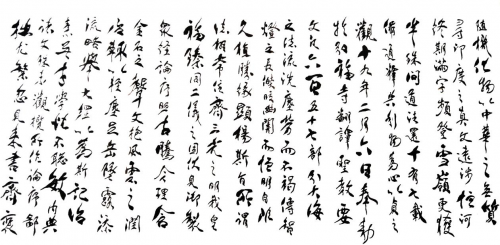 隨機化物以中華之無質
尋印度之真文遠涉恒河
終期滿字頻登雪嶺更獲
半珠問道法還十有七載
備通釋典利物為心以貞
觀十九年二月六日奉勅
於弘福寺翻譯聖教要
文凡六百五十七部引大海
之法流洗塵勞而不竭傳智
燈之長燄皎幽闇而恒明自非
久值勝緣顯揚斯旨所謂
法相常住齊三光之明我皇
福臻同二儀之固伏見御製
眾經論序照古騰今理含
金石之聲文抱風雲之潤
治輒以輕塵足岳墜露添
流略舉大綱以為斯記治
素無才學性不聰敏內典
諸文殊未觀攬所作論序鄙
拙尤繁忽見來書